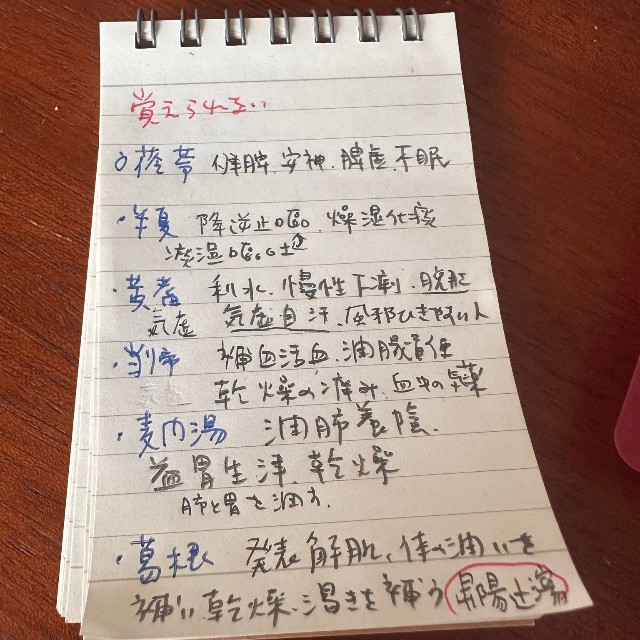 覚えられない
桂芍 健脾、安神、脾虚、不眠
・半夏 降逆止嘔。燥湿化痰
痰湿嘔吐
・黄耆 利水、慢性下痢、脱肛
気虚 気虚自汗、風邪ひき易い人
・当帰 補血活血、潤腸
乾燥の痒み、血虚の
・麦門湯 潤肺養陰、
益胃生津、乾燥
肺と胃を潤す。
・葛根 発表解肌、体の潤いを
補い、乾燥、渇きを補う 昇陽止瀉